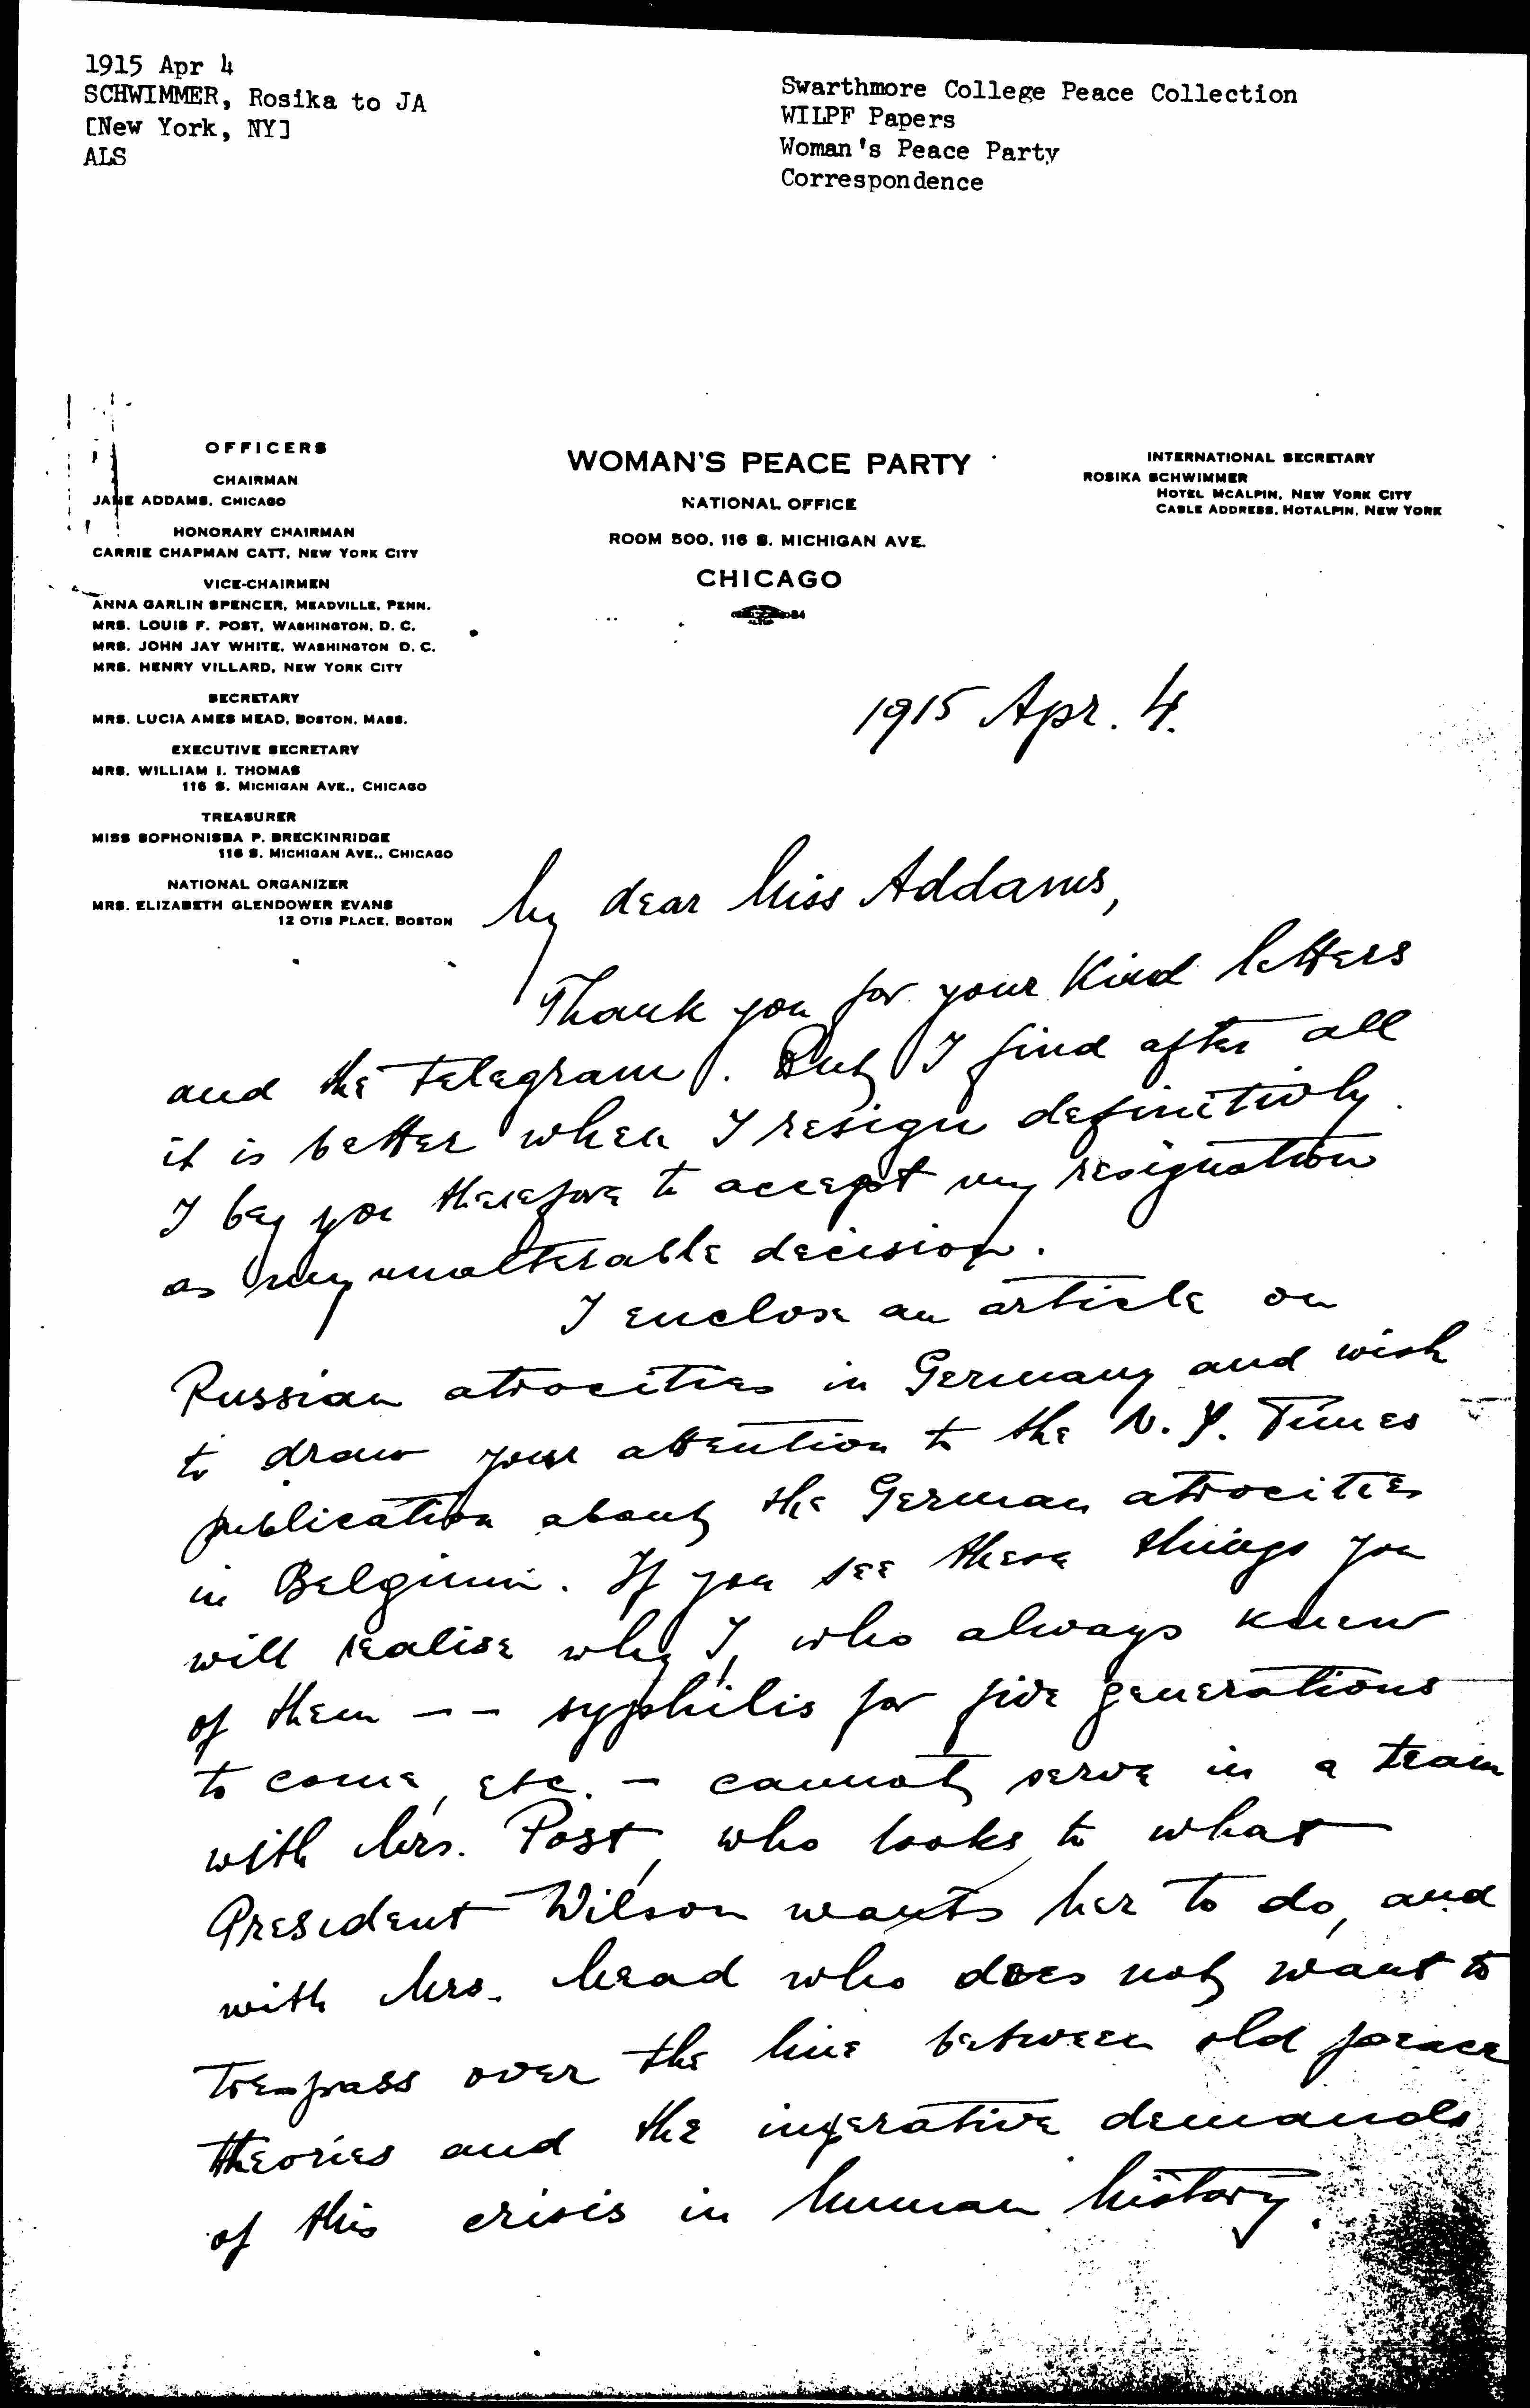 1915 Apr 4
SCHWIMMER, Rosika to JA
[New York, NY]
ALS
Swarthmore College Peace Collection
WILPF Papers
Woman's Peace Party
Correspondence
OFFICERS
CHAIRMAN
JANE ADDAMS, CHICAGO
HONORARY CHAIRMAN
CARRIE CHAPMAN CATT, NEW YORK CITY
VICE-CHAIRMEN
ANNA GARLIN SPENCER, MEADVILLE, PENN.
MRS. LOUIS F. POST, WASHINGTON, D. C.
MRS. JOHN JAY WHITE, WASHINGTON D. C.
MRS. HENRY VILLARD, NEW YORK CITY
SECRETARY
MRS. LUCIA AMES MEAD, BOSTON, MASS.
EXECUTIVE SECRETARY
MRS. WILLIAM I. THOMAS
116 S. MICHIGAN AVE., CHICAGO
TREASURER
MISS SOPHONISBA P. BRECKINRIDGE
116 S. MICHIGAN AVE., CHICAGO
NATIONAL ORGANIZER
MRS. ELIZABETH GLENDOWER EVANS
12 OTIS PLACE, BOSTON
WOMAN'S PEACE PARTY
NATIONAL OFFICE
ROOM 500, 116 S. MICHIGAN AVE.
CHICAGO
INTERNATIONAL SECRETARY
ROSIKA SCHWIMMER
HOTEL MCALPIN, NEW YORK CITY
CABLE ADDRESS, HOTALPIN, NEW YORK
1915 Apr. 4.
My dear Miss Addams,
Thank you for your kind letters
and the telegram. But I find after all
it is better when I resign definitivly.
I beg you therefore to accept my resignation
as my unalterable decision.
I enclose an article on
Russian atrocities in Germany and wish
to draw your attention to the N. Y. Times
publication about the German atrocities
in Belgium. If you see these things you
will realise why I, who always knew
of them -- syphilis for five generations
to come, etc. - cannot serve in a team
with Mrs. Post, who looks to what
President Wilson wants her to do, and
with Mrs. Mead who does not want to
trespass over the line between old peace
theories and the imperative demands
of this crisis in human history.